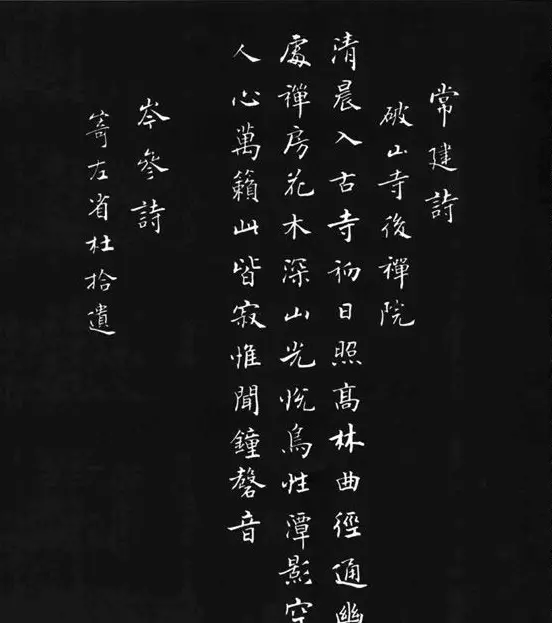 常建詩
破山寺後禪院
清晨入古寺初日照高林曲徑通幽
處禪房花木深山光悅鳥性潭影空
人心萬籟此皆寂惟聞鐘磬音
岑參詩
寄左省杜拾遺